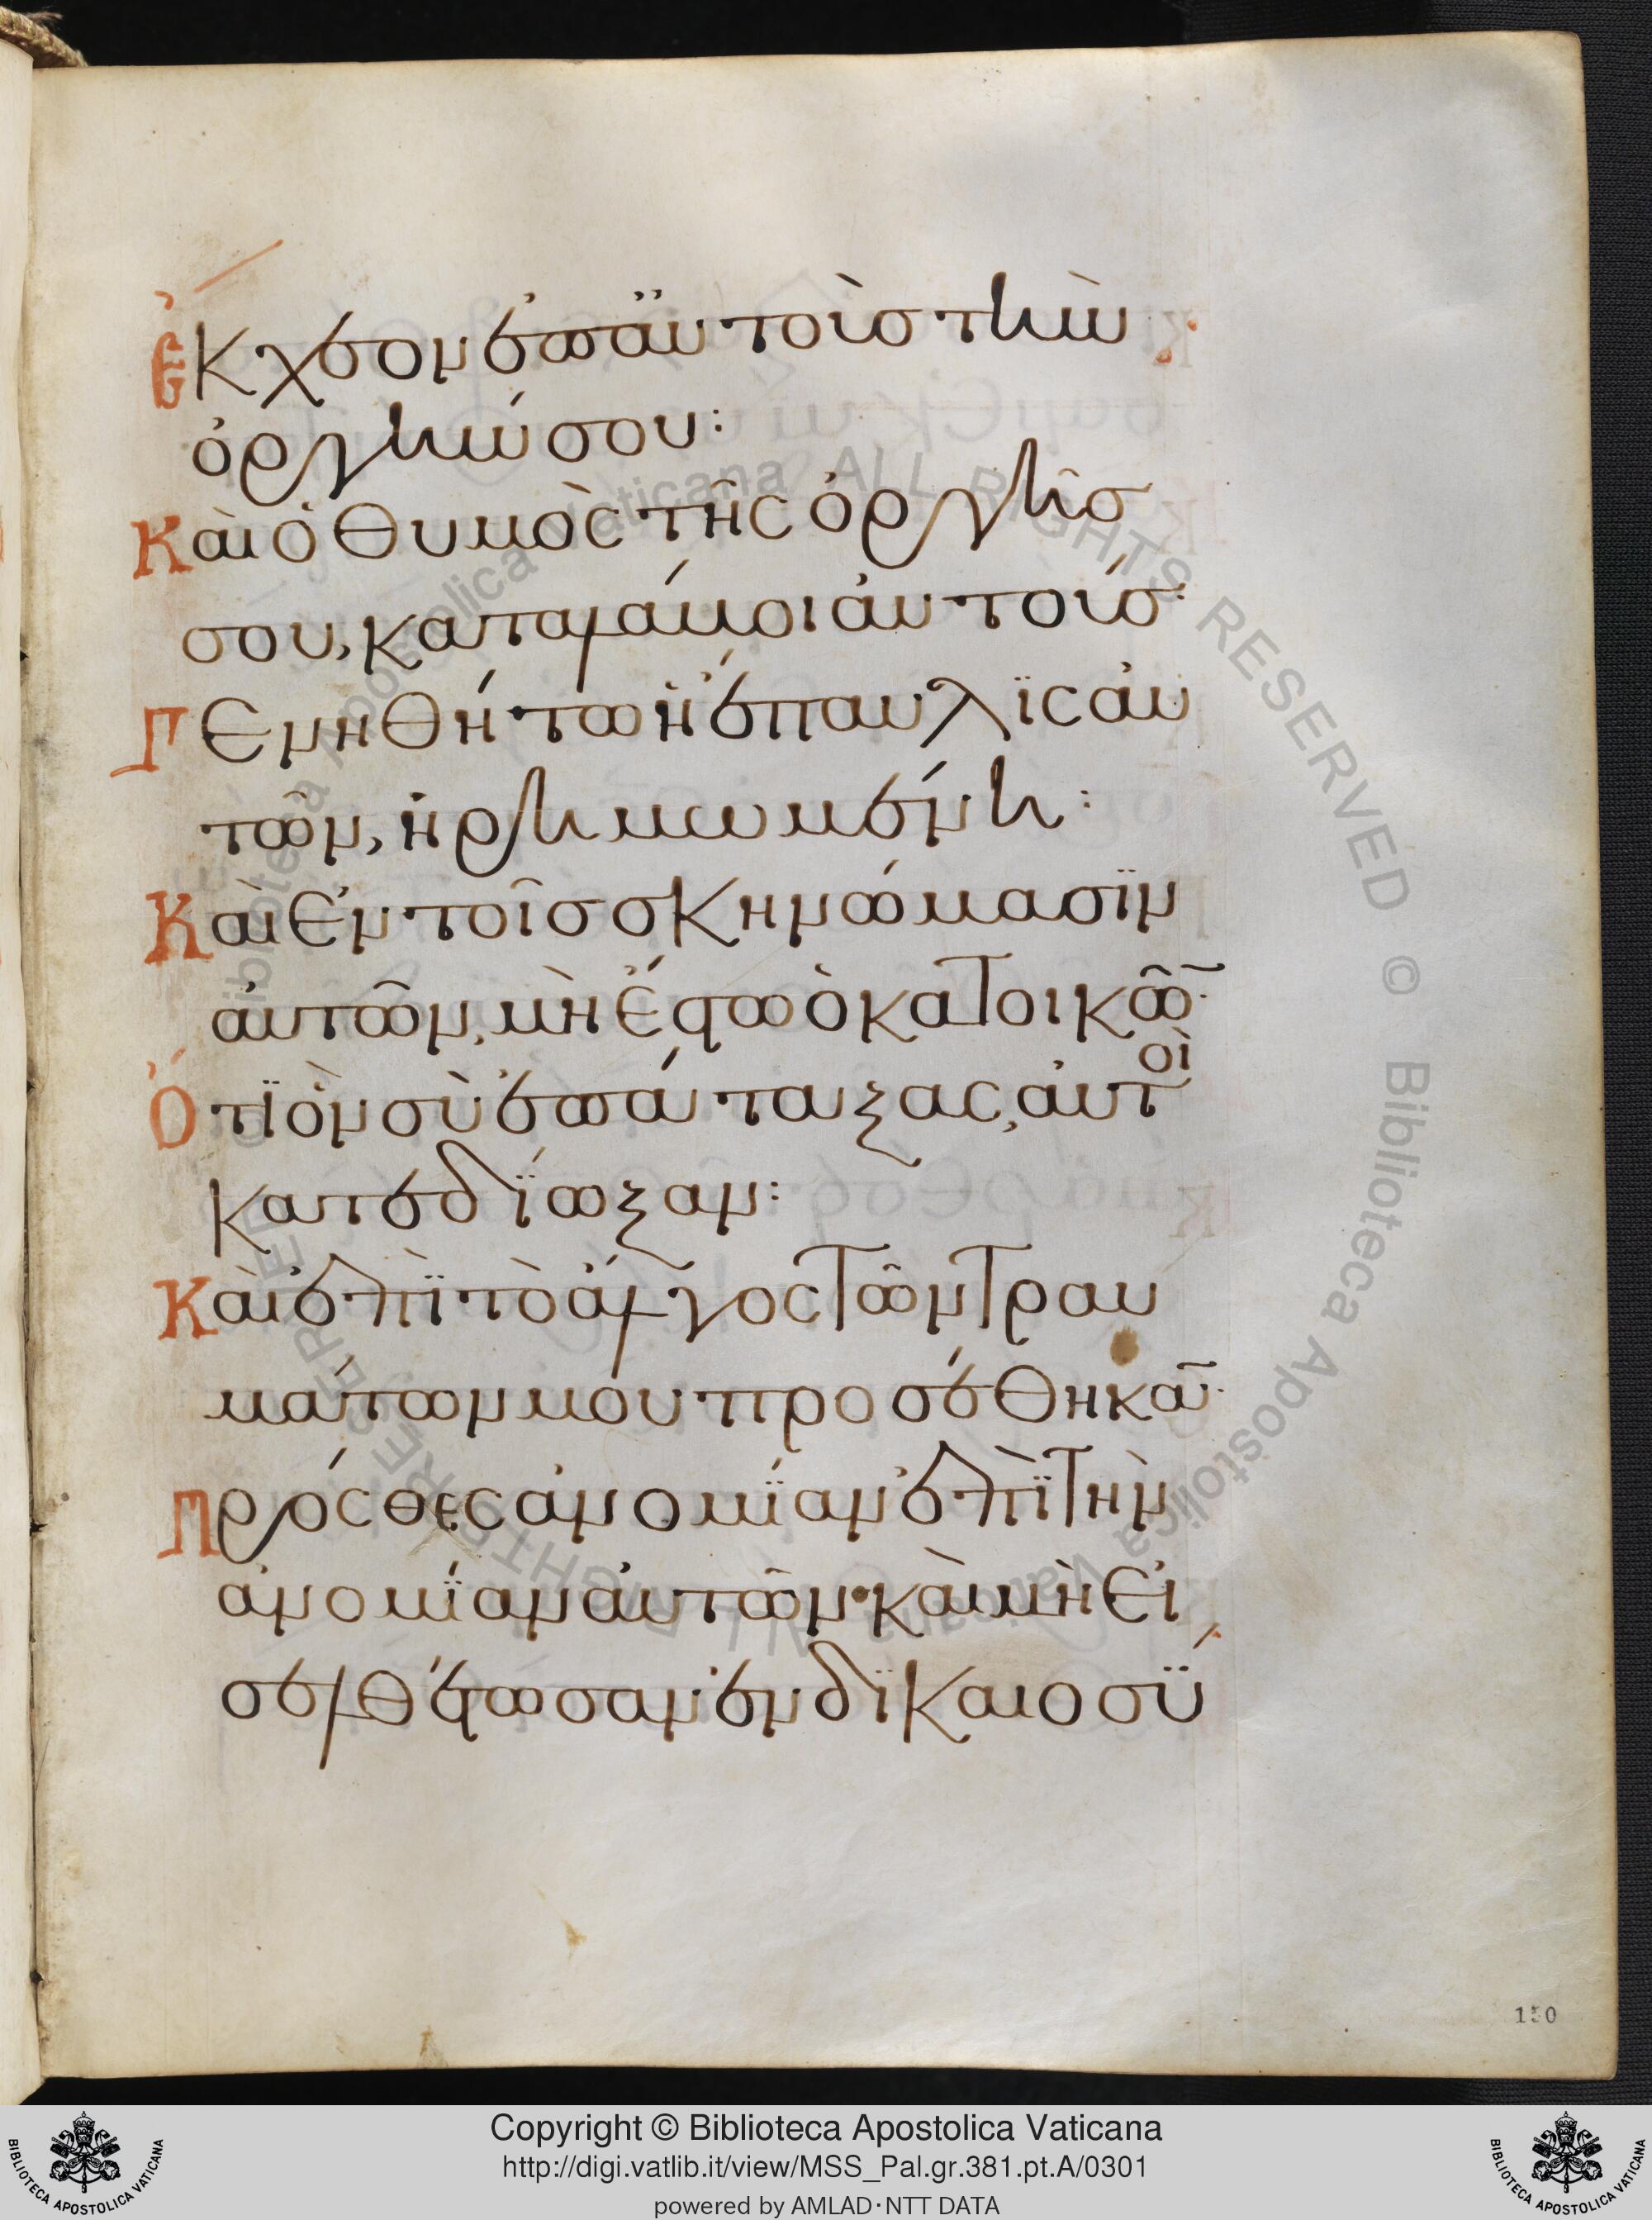 Ἔκχεον ἐπ' αὐτοὺς τὴν
ὀργήν σου:
Καὶ ὁ θυμὸς τῆς ὀργῆς
σου, καταλάβοι αὐτούς·
Γενηθήτω ἡ ἔπαυλϊς αὐ
τῶν, ἠρημωμένη:
Καὶ ἐν τοῖς σκηνώμασϊν
αὐτῶν, μὴ ἔστω ὁ κατοικῶ̅·
Ὅτϊ ὃν σὺ ἐπάταξας, αὐτοὶ
κατεδΐωξαν:
Καὶ ἐπῒ τὸ ἄλγος τῶν τραυ
μάτων μου προσέθηκα̅·
Πρόσθες ἀνομΐαν ἐπῒ τὴν
ἀνομΐαν αὐτῶν· καὶ μὴ εἰ
σελθέτωσαν ἐν δϊκαιοσΰ
150
Copyright © Biblioteca Apostolica Vaticana
http://digi.vatlib.it/view/MSS_Pal.gr.381.pt.A/0301
powered by AMLAD·NTT DATA
BIBLIOTECA APOSTOLICA VATICANA
BIBLIOTECA APOSTOLICA VATICANA
Biblioteca Apostolica Vaticana ALL RIGHTS RESERVED © Biblioteca Apostolica Vaticana ALL RIGHTS RESERVED ©